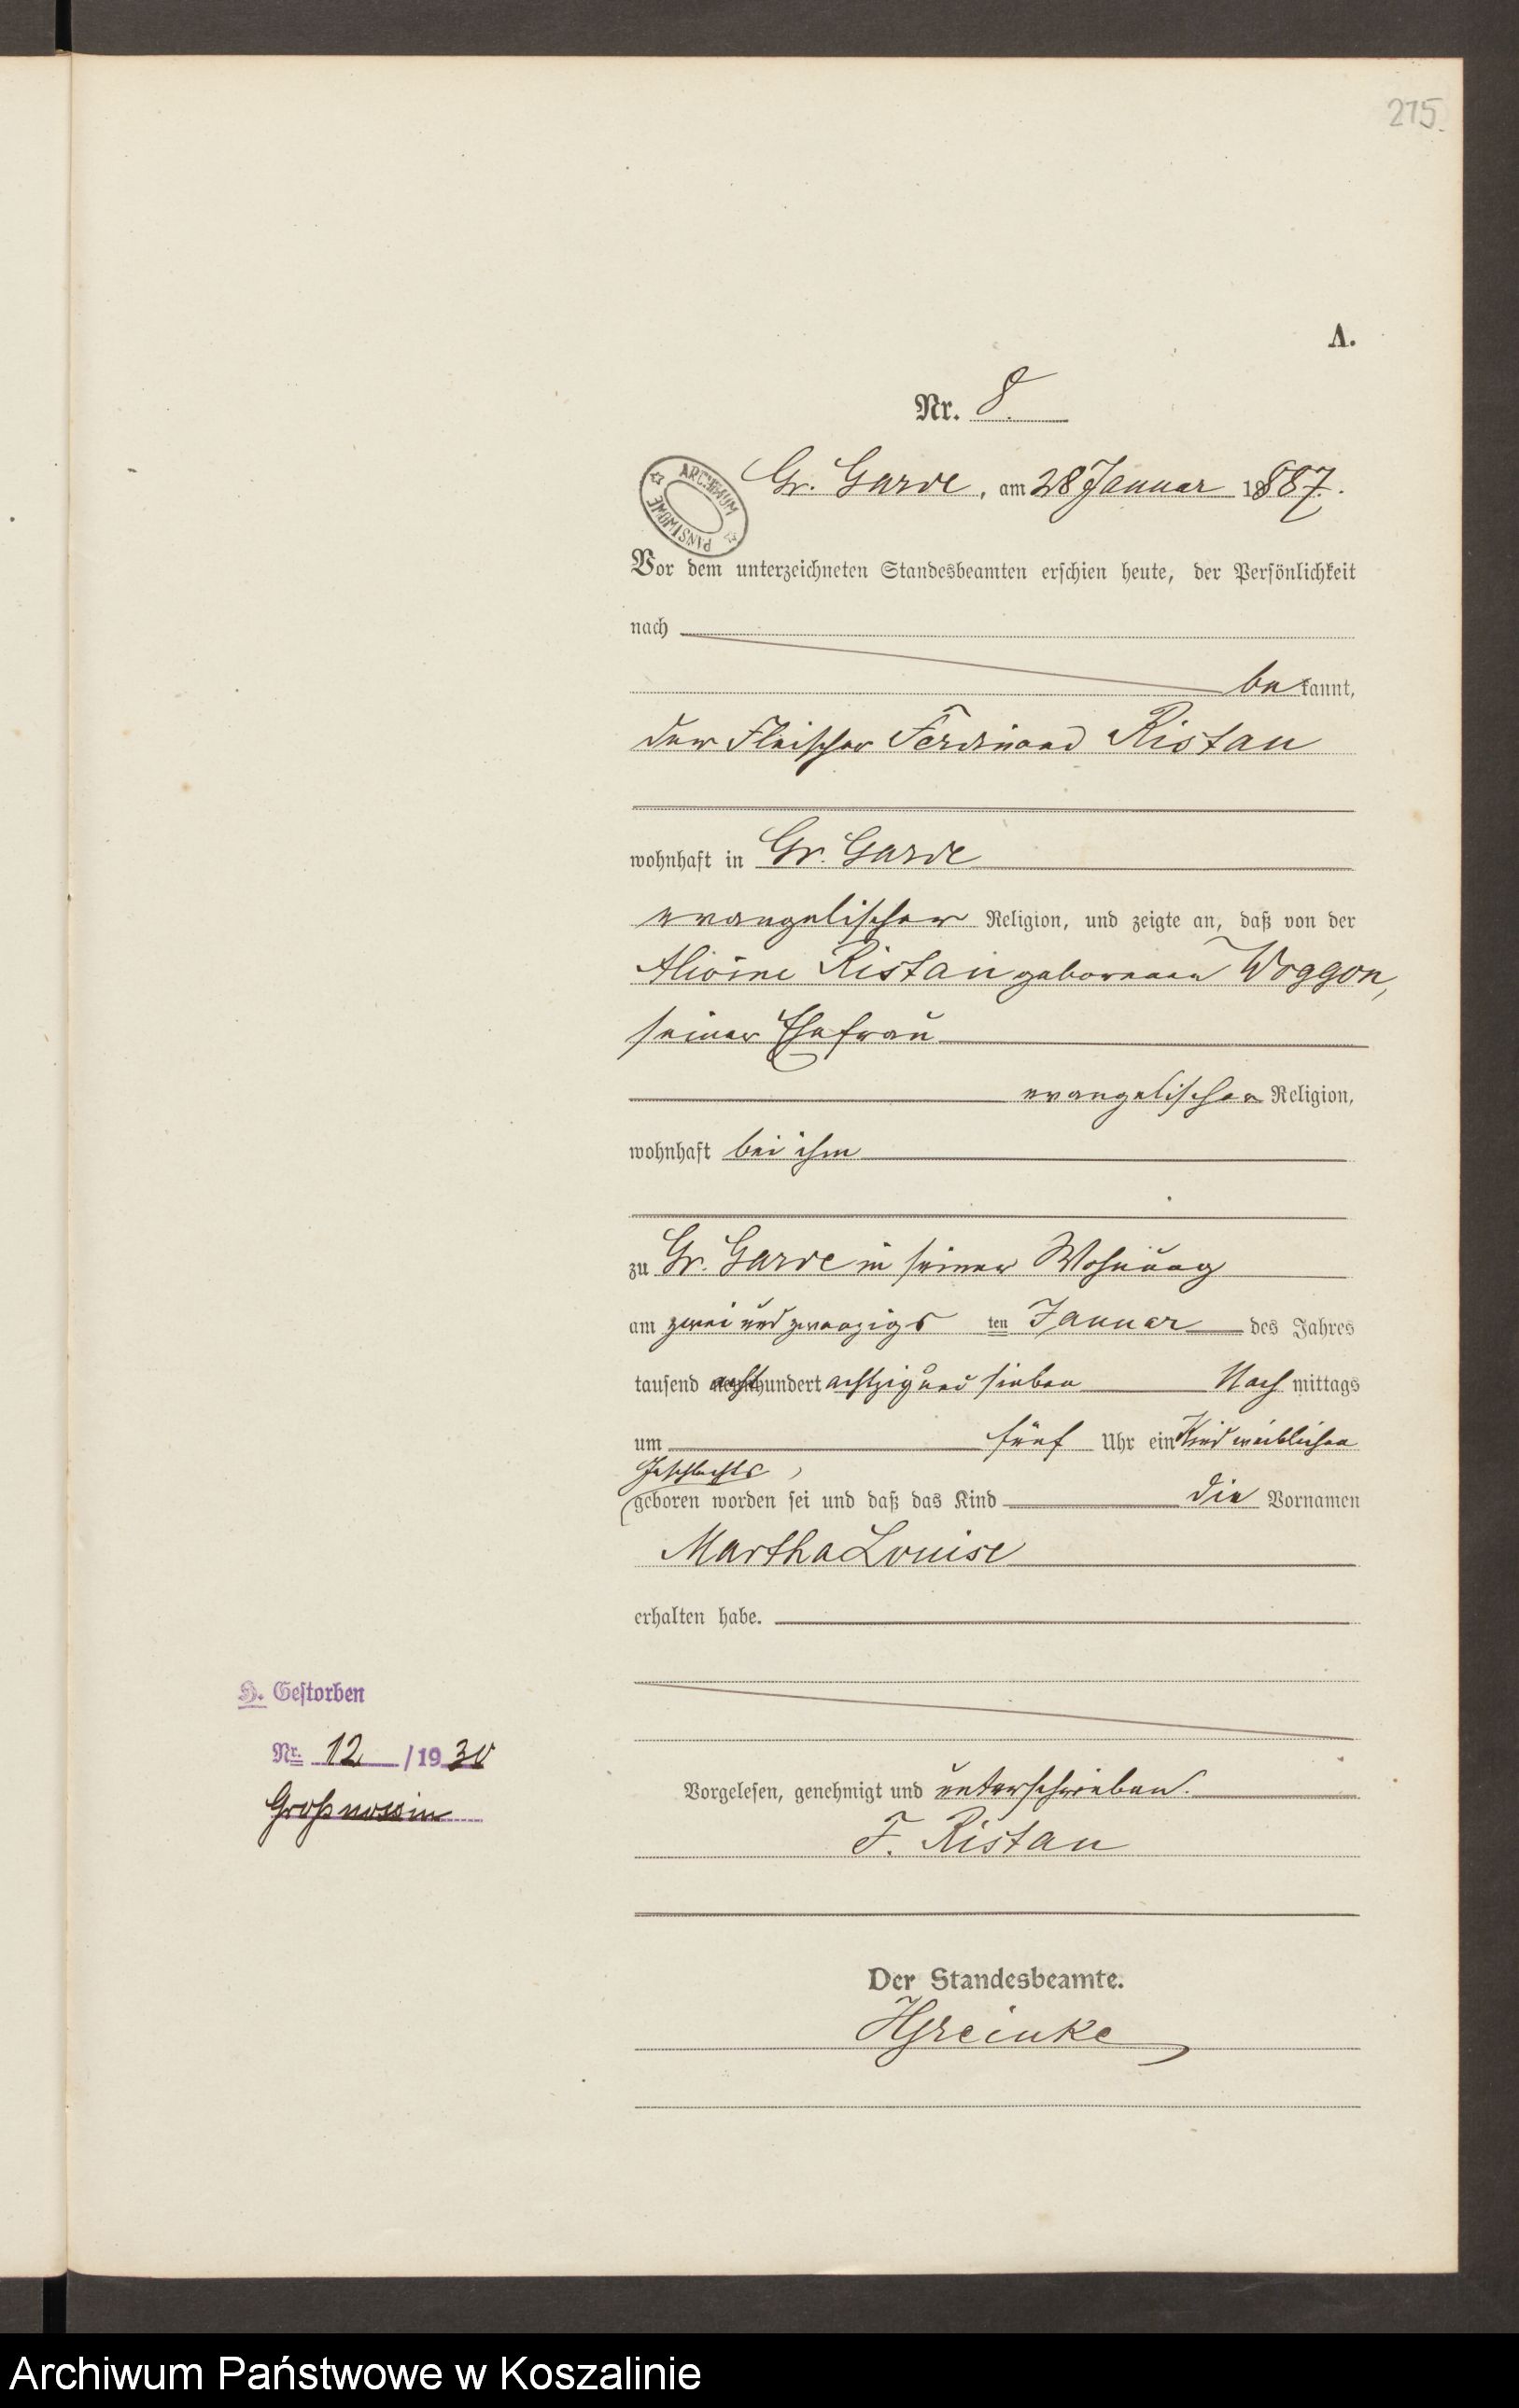 275.
A.
Nr. 8.
ARCHIWUM PAŃSTWOWE
Gr. Garde, am 28 Januar 1887.
Vor dem unterzeichneten Standesbeamten erschien heute, der Persönlichkeit
nach
bekannt,
der Fleischer Ferdinand Ristau
wohnhaft in Gr. Garde
evangelischer Religion, und zeigte an, daß von der
Albine Ristau geborenen Woggon,
seiner Ehefrau
evangelischer Religion,
wohnhaft bei ihm
zu Gr. Garde in seiner Wohnung
am zwei und zwanzigsten Januar des Jahres
tausend achthundert achtzig und sieben Nachmittags
um fünf Uhr ein Kind weiblichen
Geschlechts,
geboren worden sei und daß das Kind die Vornamen
Martha Louise
erhalten habe.
H. Gestorben
Nr. 12 /1930
Großnossin
Vorgelesen, genehmigt und unterschrieben.
F. Ristau
Der Standesbeamte.
Archiwum Państwowe w Koszalinie